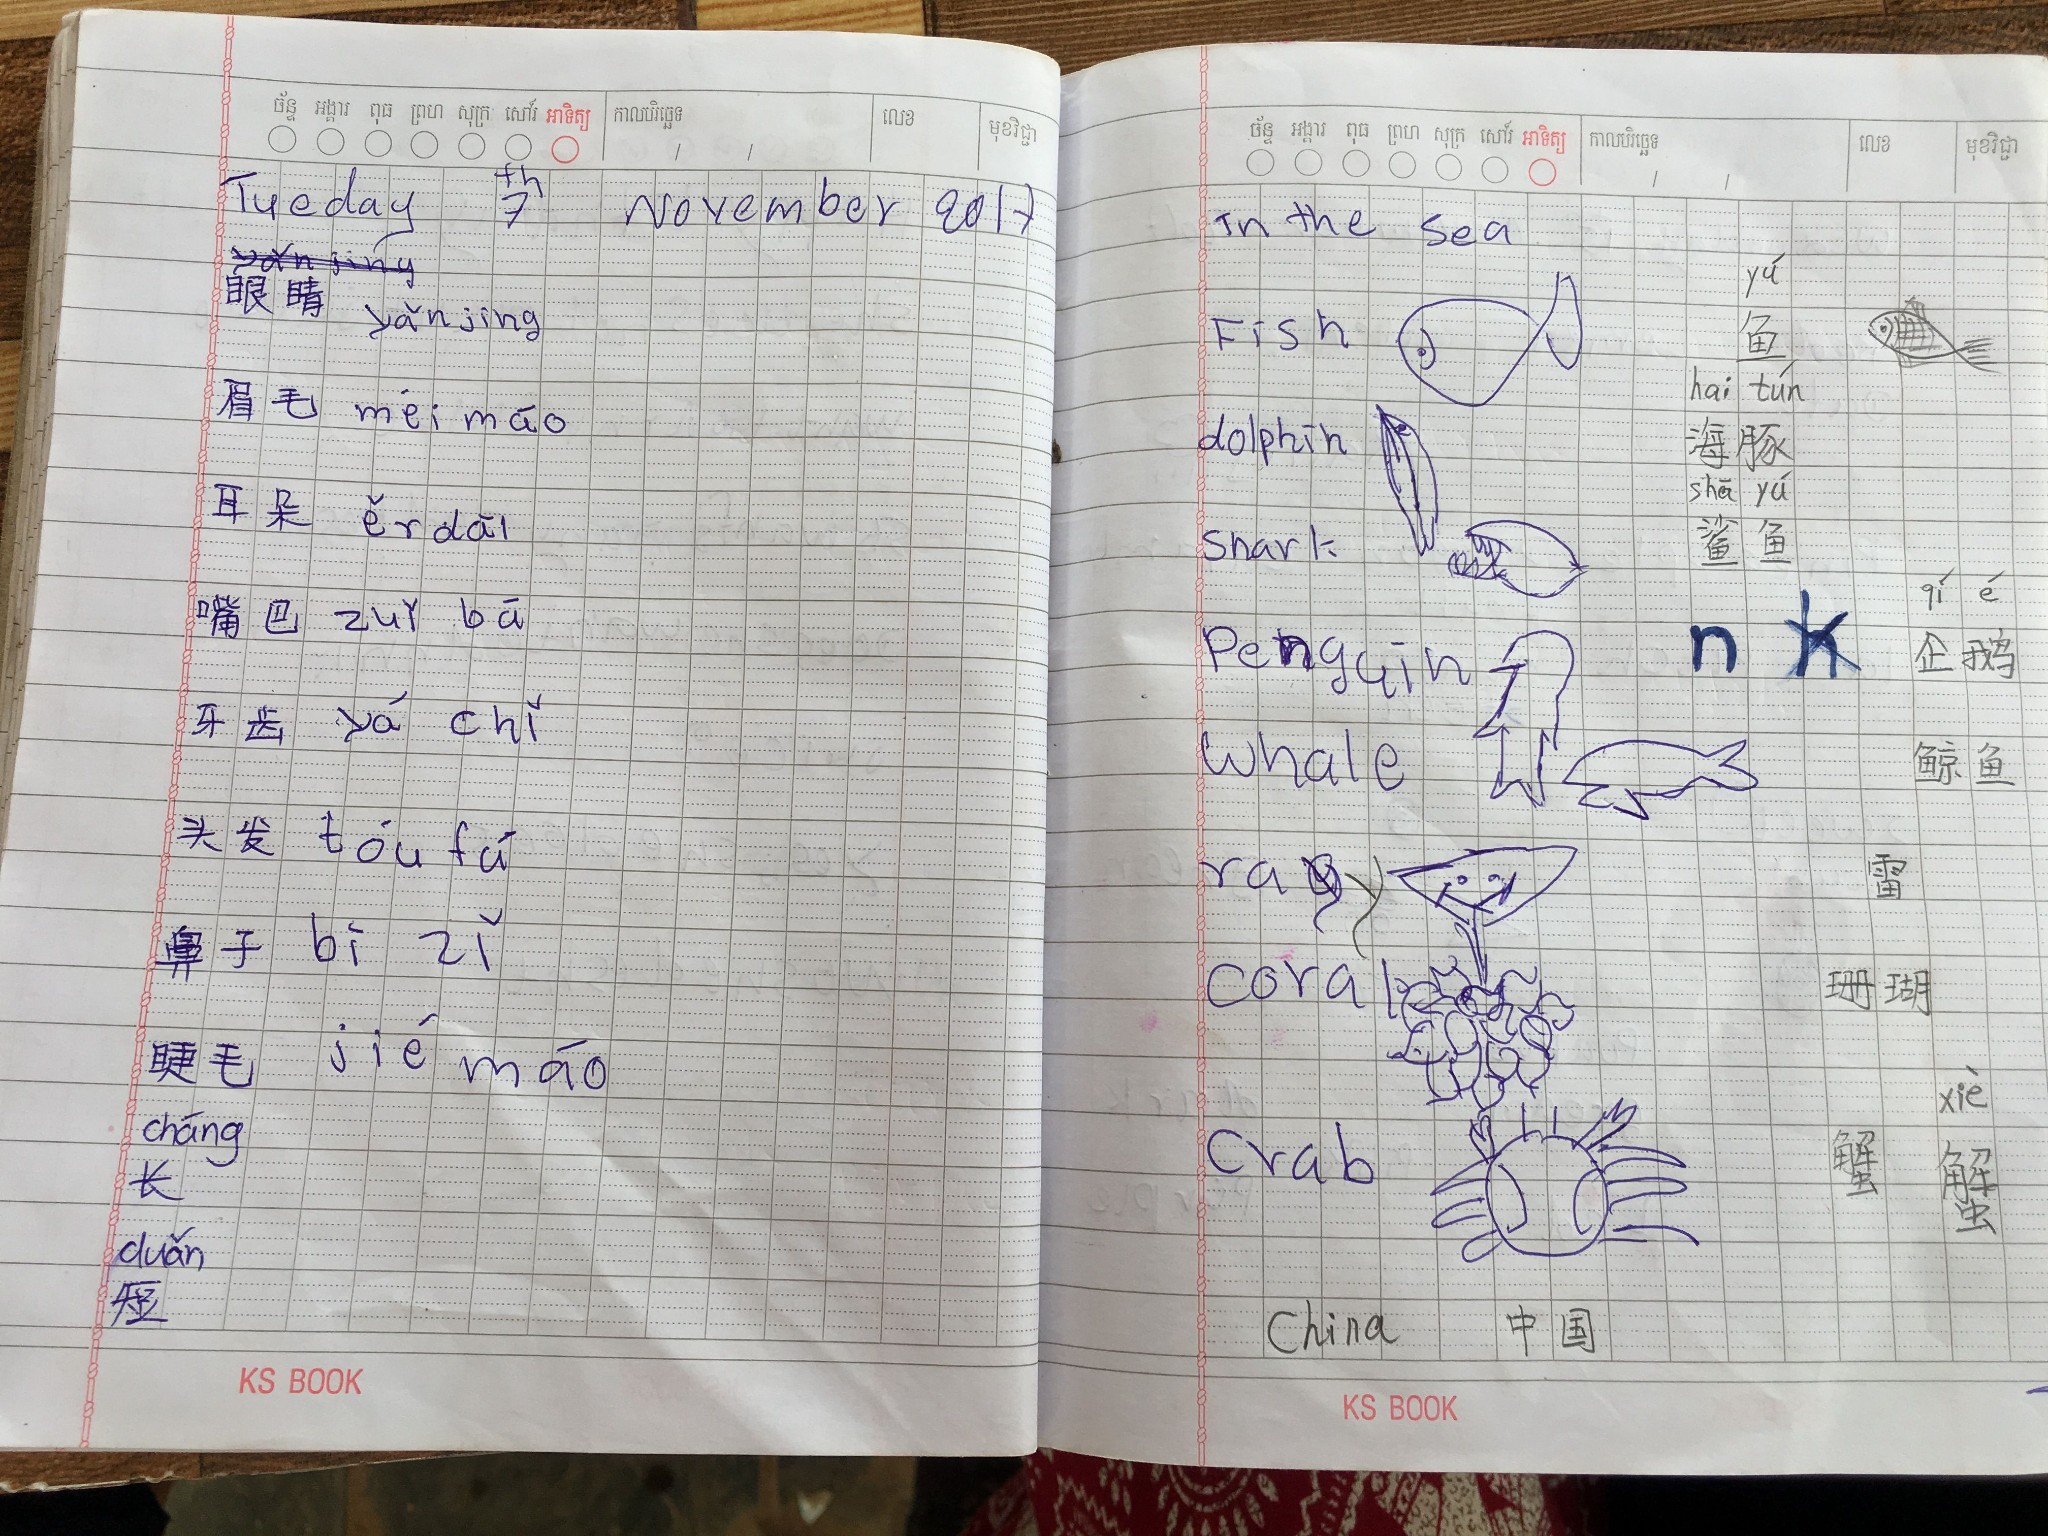 ច័ន្ទ អង្គារ ពុធ ព្រហ សុក្រ សៅរ៍ អាទិត្យ កាលបរិច្ឆេទ / / លេខ មុខវិជ្ជា
Tueday 7th November 2017
yǎn jing
眼睛 yǎn jing
眉毛 méi máo
耳朵 ěr dāi
嘴巴 zuǐ bā
牙齿 yá chǐ
头发 tóu fá
鼻子 bī zǐ
睫毛 jié māo
cháng
长
duǎn
短
KS BOOK
ច័ន្ទ អង្គារ ពុធ ព្រហ សុក្រ សៅរ៍ អាទិត្យ កាលបរិច្ឆេទ / / លេខ មុខវិជ្ជា
In the sea
yú
Fish 鱼
hai tún
dolphin 海豚
shā yú
shark 鲨鱼
qí é
Penguin n k 企鹅
whale 鲸鱼
ray 雷
coral 珊瑚
xiè
Crab 蟹 蟹
China 中国
KS BOOK